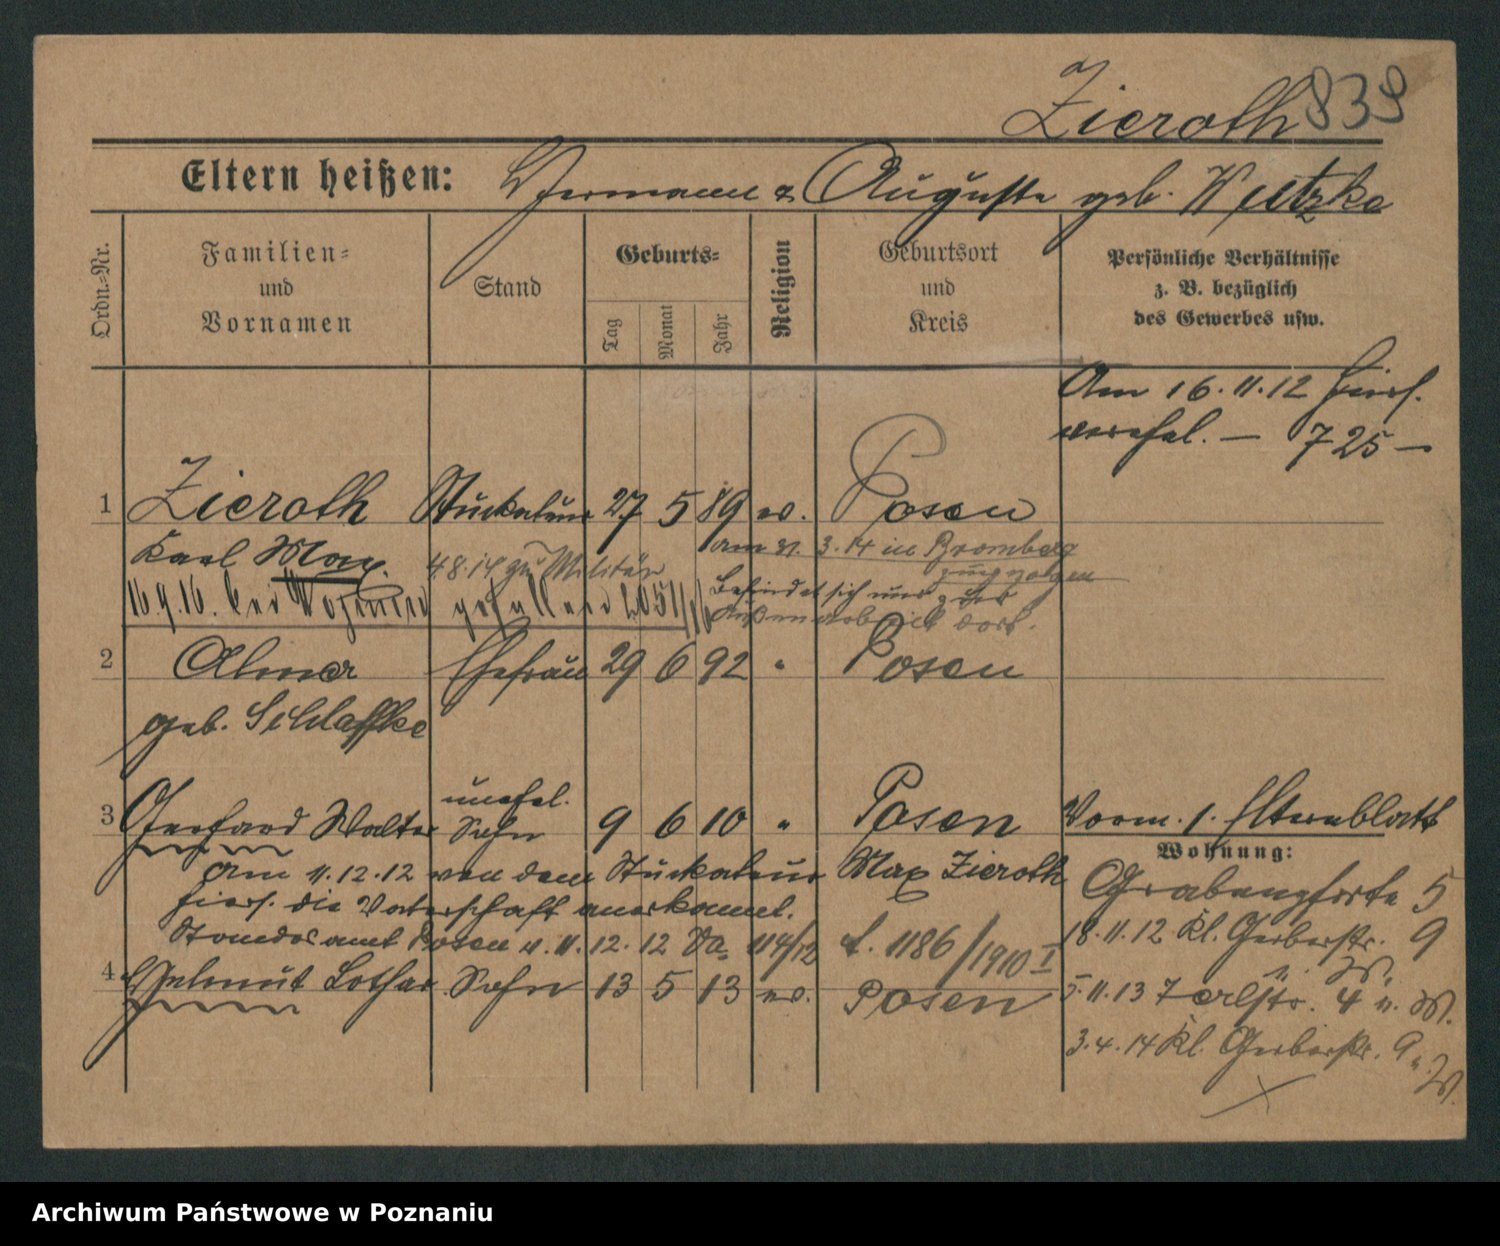 Zieroth 839
Eltern heißen: Hermann & Auguste geb.
Ordn.-Nr.
Familien- und Vornamen
Stand
Geburts-
Tag Monat Jahr
Religion
Geburtsort und Kreis
Persönliche Verhältnisse
z. B. bezüglich
des Gewerbes usw.
Am 16.11.12 hiers.
verehel. — 725 —
1 Zieroth Stuckateur 27 5 89 ev. Posen
Karl Max.
4.8.14 zu Militär
am 31. 3. 14 in Bromberg
zugezogen
Befindet sich nur zur
Außenarbeit dort.
16.9.16. bei gefallen 2051/16
2 Alma Ehefrau 29 6 92 " Posen
geb. Schlaffke
unehel.
3 Gerhard Walter Sohn 9 6 10 " Posen Vorm. 1. Elternblatt
am 11.12.12 von dem Stuckateur Max Zieroth
hiers. die Vaterschaft anerkannt.
Standesamt Posen v. 11.12.12 114/12 1186/1910 I
4 Helmut Lothar Sohn 13 5 13 ev. Posen
Wohnung:
Grabenpforte 5
18.11.12 Kl. Gerberstr. 9
5.11.13 4
3.4.14 Kl. Gerberstr. 9
Archiwum Państwowe w Poznaniu